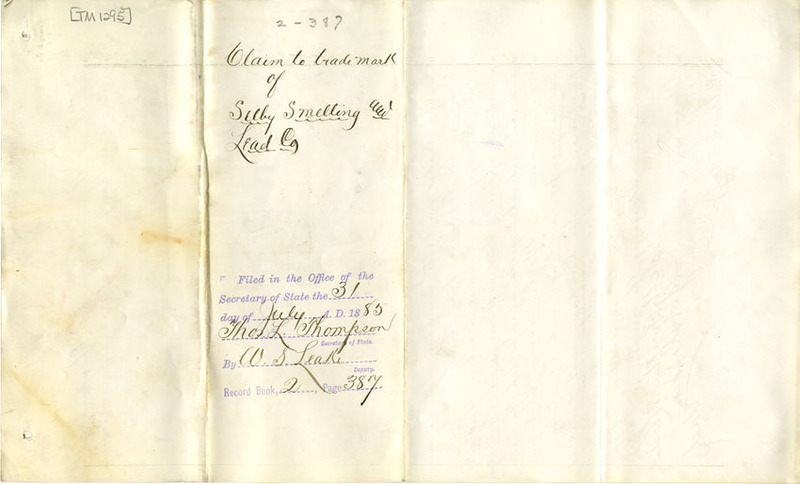 [TM 1295]
2-387
Claim to trade mark
of
Selby Smelting and
Lead Co
Filed in the Office of the
Secretary of State the 31
day of July A. D. 1885
Thos L. Thompson
Secretary of State.
By W. S. Leake
Deputy.
Record Book, 2, Page 387.